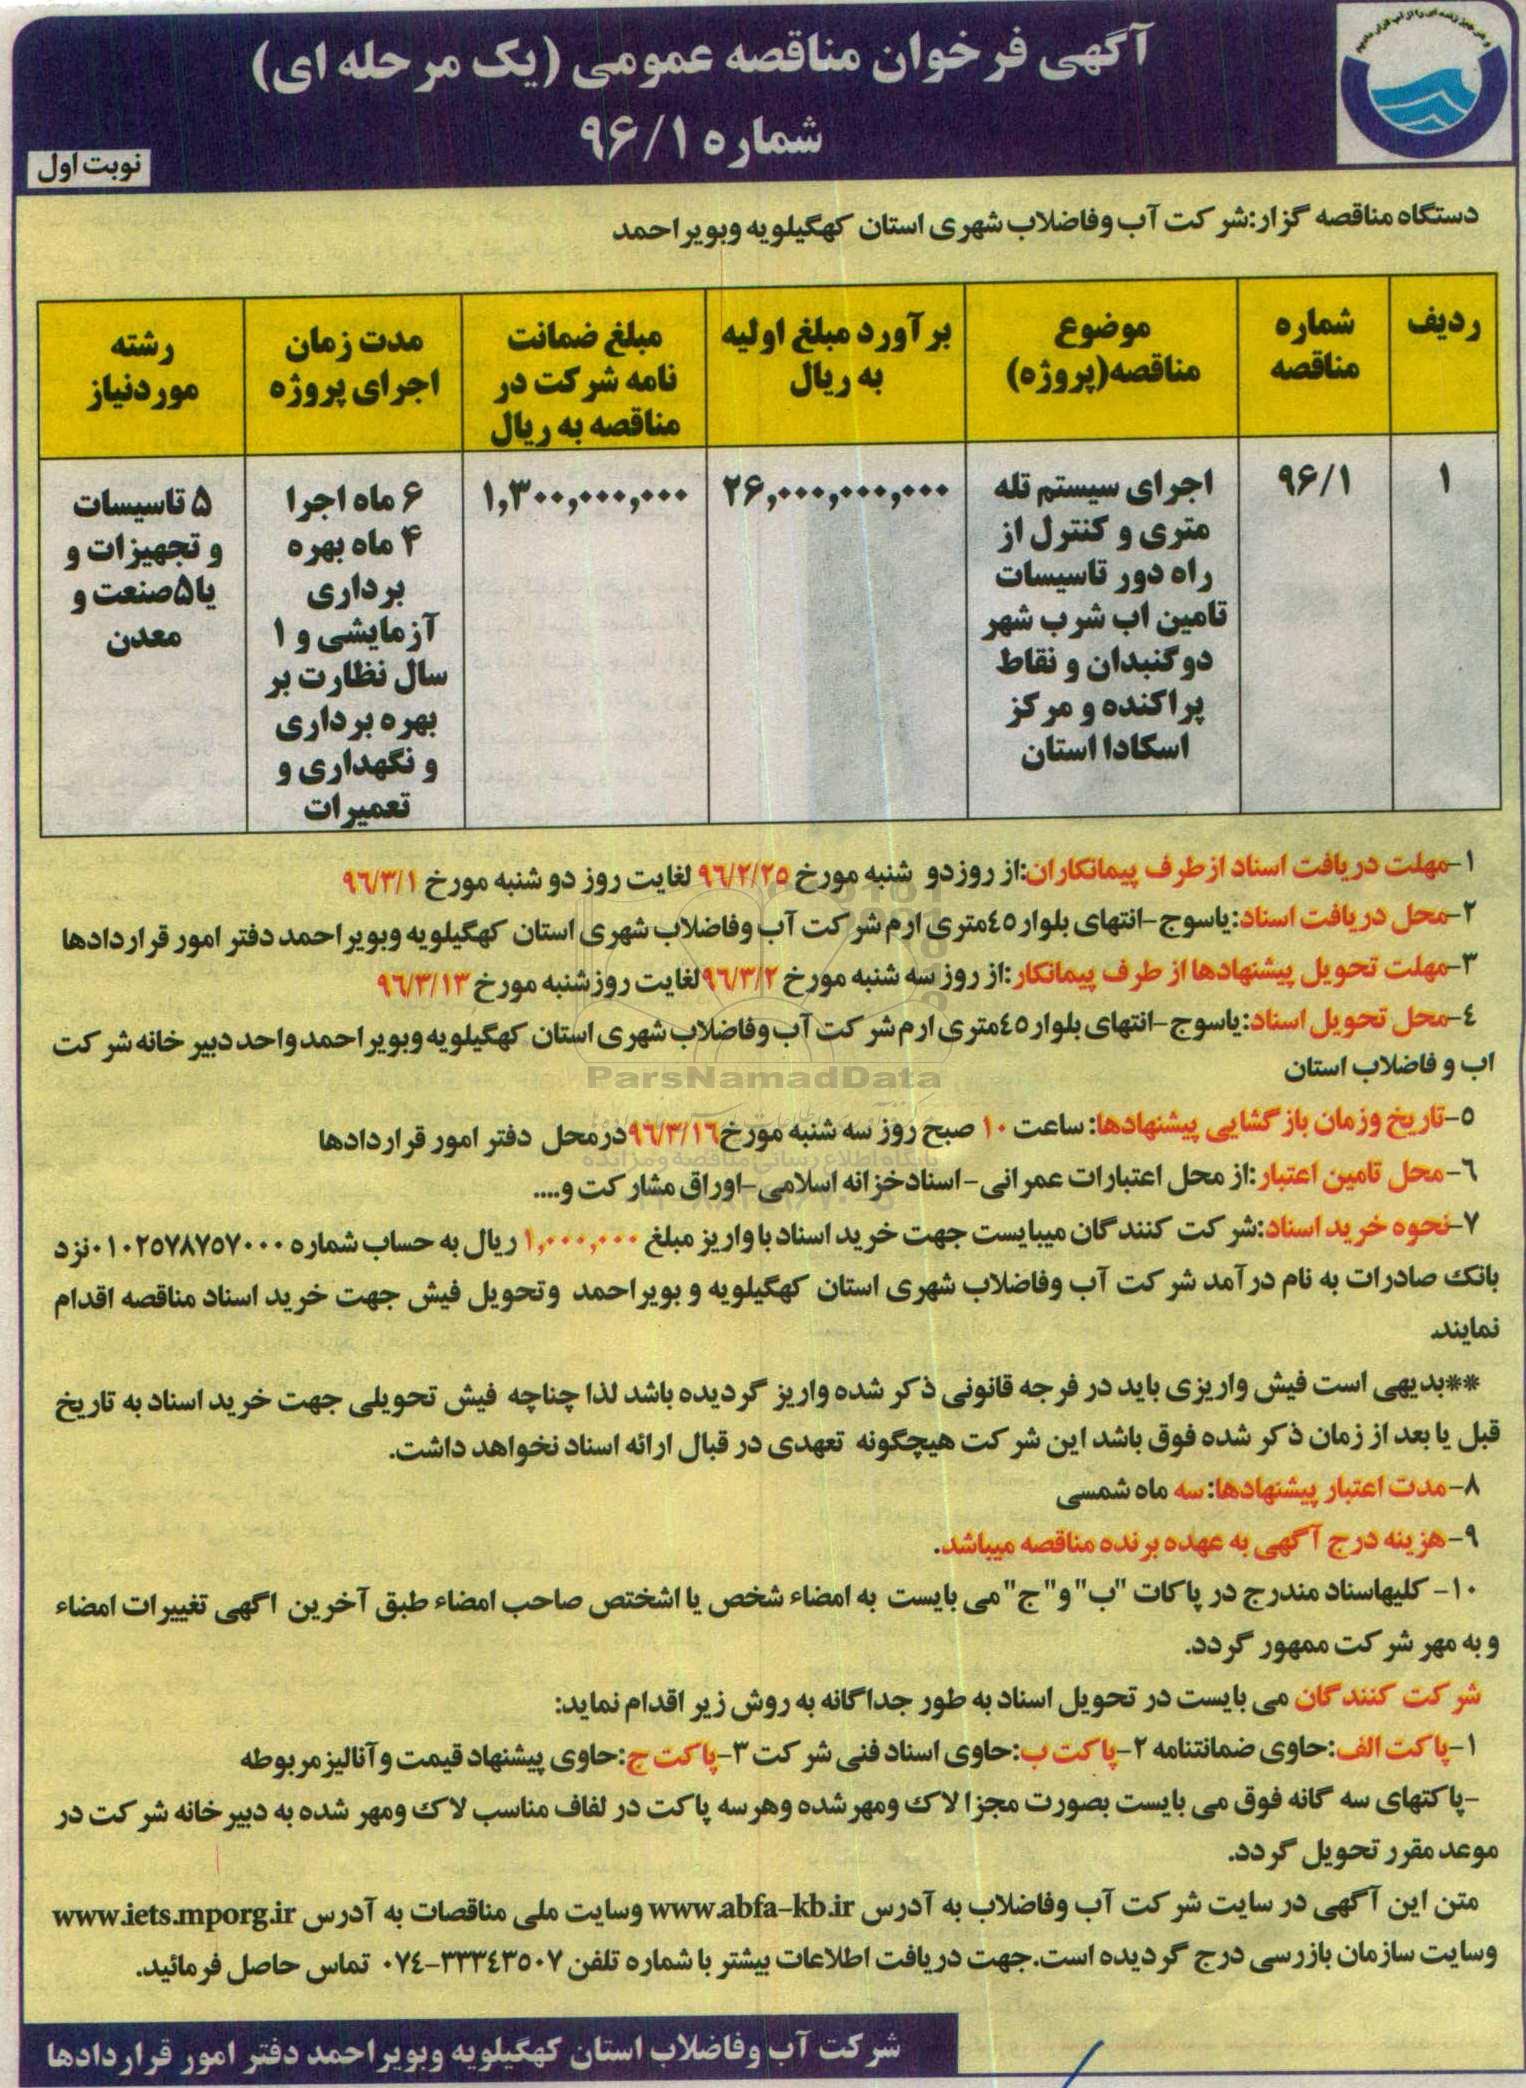 آگهی فرخوان مناقصه عمومی (یک مرحله ای)
شماره ۹۶/۱
نوبت اول
دستگاه مناقصه گزار:شرکت آب وفاضلاب شهری استان کهگیلویه وبویراحمد
ردیف
شماره
مناقصه
موضوع
مناقصه(پروژه)
برآورد مبلغ اولیه
به ریال
مبلغ ضمانت
نامه شرکت در
مناقصه به ریال
مدت زمان
اجرای پروژه
رشته
موردنیاز
۱
۹۶/۱
اجرای سیستم تله
متری و کنترل از
راه دور تاسیسات
تامین اب شرب شهر
دوگنبدان و نقاط
پراکنده و مرکز
اسکادا استان
۲۶,۰۰۰,۰۰۰,۰۰۰
۱,۳۰۰,۰۰۰,۰۰۰
۶ ماه اجرا
۴ ماه بهره
برداری
آزمایشی و ۱
سال نظارت بر
بهره برداری
و نگهداری و
تعمیرات
۵ تاسیسات
و تجهیزات و
یا۵صنعت و
معدن
۱-مهلت دریافت اسناد ازطرف پیمانکاران:از روزدو شنبه مورخ ۹٦/۲/۲٥ لغایت روز دو شنبه مورخ ۹٦/۳/۱
۲-محل دریافت اسناد:یاسوج-انتهای بلوار٤٥متری ارم شرکت آب وفاضلاب شهری استان کهگیلویه وبویراحمد دفتر امور قراردادها
۳-مهلت تحویل پیشنهادها از طرف پیمانکار:از روز سه شنبه مورخ ۹٦/۳/۲لغایت روزشنبه مورخ ۹٦/۳/۱۳
٤-محل تحویل اسناد:یاسوج-انتهای بلوار٤٥متری ارم شرکت آب وفاضلاب شهری استان کهگیلویه وبویراحمد واحد دبیر خانه شرکت
اب و فاضلاب استان
ParsNamadData
٥-تاریخ وزمان بازگشایی پیشنهادها: ساعت ۱۰ صبح روز سه شنبه مورخ۹٦/۳/۱٦درمحل دفتر امور قراردادها
پایگاه اطلاع رسانی مناقصه و مزایده
٦-محل تامین اعتبار:از محل اعتبارات عمرانی-اسنادخزانه اسلامی-اوراق مشارکت و....
۷-نحوه خرید اسناد:شرکت کنندگان میبایست جهت خرید اسناد با واریز مبلغ ۱,۰۰۰,۰۰۰ ریال به حساب شماره ۰۱۰۲٥۷۸۷٥۷۰۰۰نزد
بانک صادرات به نام درآمد شرکت آب وفاضلاب شهری استان کهگیلویه و بویراحمد وتحویل فیش جهت خرید اسناد مناقصه اقدام
نمایند.
**بدیهی است فیش واریزی باید در فرجه قانونی ذکر شده واریز گردیده باشد لذا چناچه فیش تحویلی جهت خرید اسناد به تاریخ
قبل یا بعد از زمان ذکر شده فوق باشد این شرکت هیچگونه تعهدی در قبال ارائه اسناد نخواهد داشت.
۸-مدت اعتبار پیشنهادها:سه ماه شمسی
۹-هزینه درج آگهی به عهده برنده مناقصه میباشد.
۱۰- کلیهاسناد مندرج در پاکات "ب" و "ج" می بایست به امضاء شخص یا اشختص صاحب امضاء طبق آخرین اگهی تغییرات امضاء
و به مهر شرکت ممهور گردد.
شرکت کنندگان می بایست در تحویل اسناد به طور جداگانه به روش زیر اقدام نماید:
۱-پاکت الف:حاوی ضمانتنامه ۲-پاکت ب:حاوی اسناد فنی شرکت ۳-پاکت ج:حاوی پیشنهاد قیمت و آنالیزمربوطه
-پاکتهای سه گانه فوق می بایست بصورت مجزا لاک ومهرشده وهرسه پاکت در لفاف مناسب لاک ومهر شده به دبیرخانه شرکت در
موعد مقرر تحویل گردد.
متن این آگهی در سایت شرکت آب وفاضلاب به آدرس www.abfa-kb.ir وسایت ملی مناقصات به آدرس www.iets.mporg.ir
وسایت سازمان بازرسی درج گردیده است.جهت دریافت اطلاعات بیشتر با شماره تلفن ۰۷٤-۳۳۳٤۳٥۰۷ تماس حاصل فرمائید.
شرکت آب وفاضلاب استان کهگیلویه وبویراحمد دفتر امور قراردادها